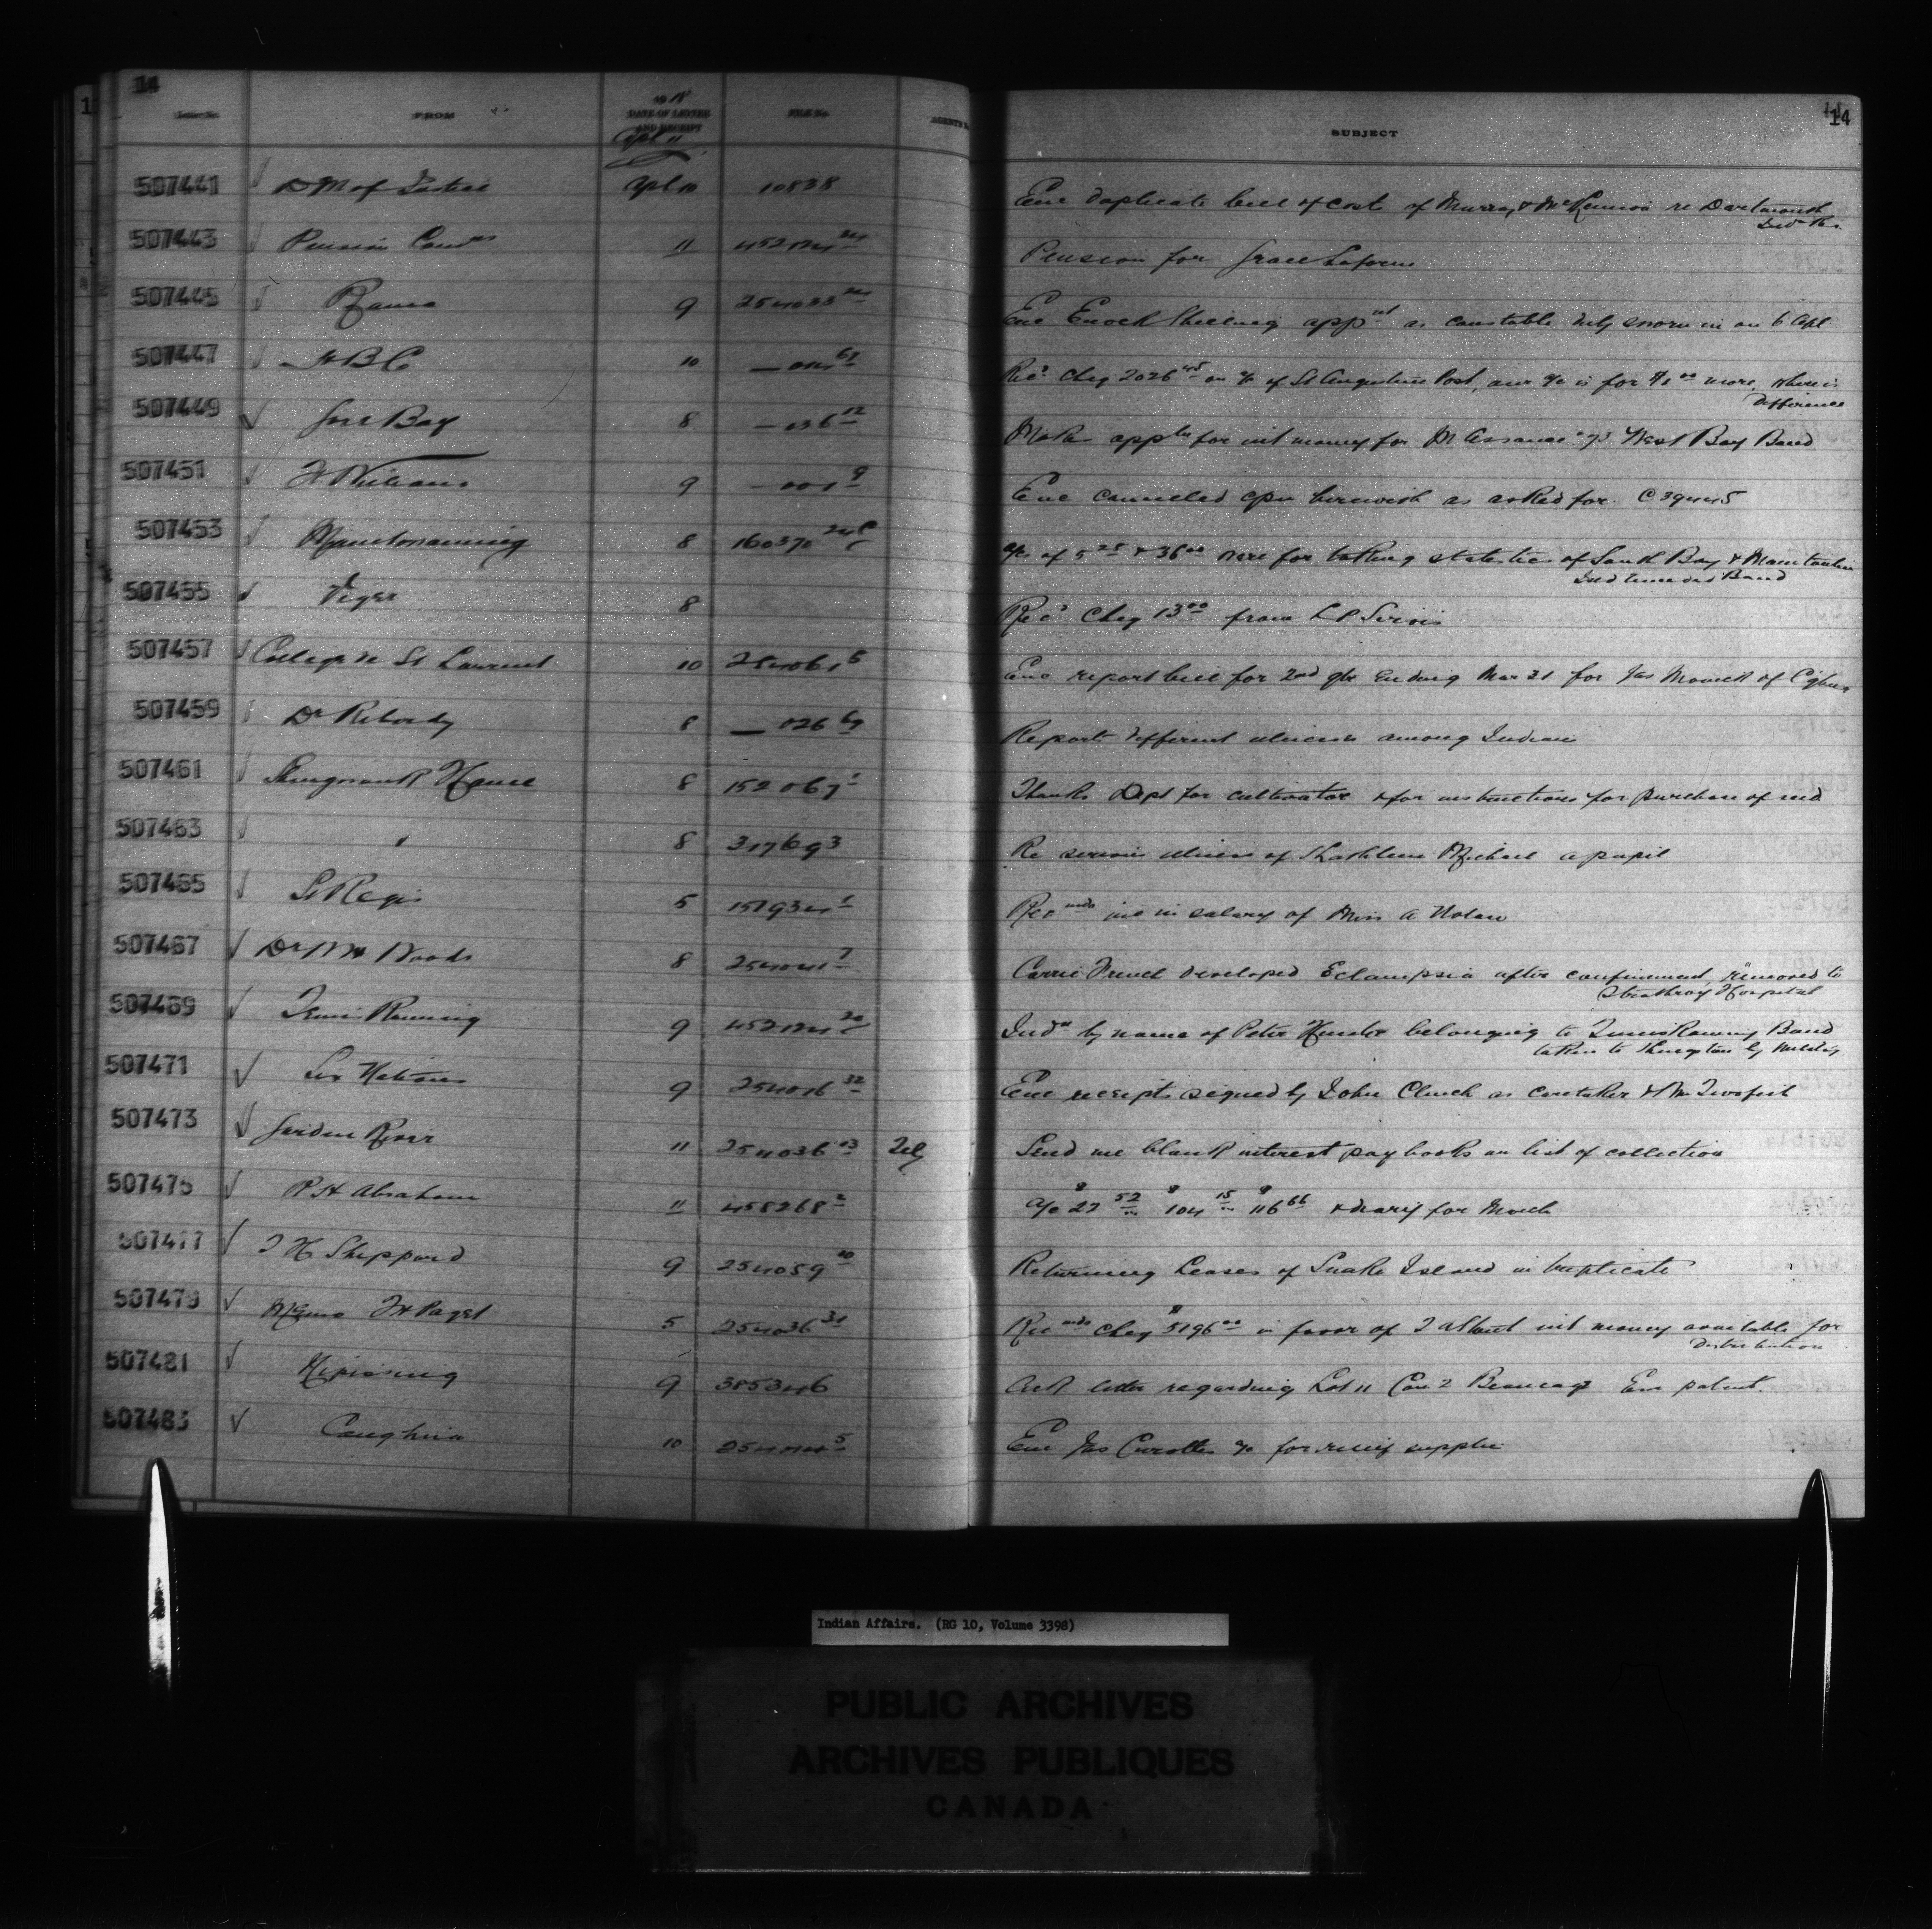 14
Letter No. FROM 1918 DATE OF LETTER AND RECEIPT FILE No. AGENT'S SUBJECT 14
Apl 11
507441 D M of Justice Apl 10 10838 Enc duplicate bill of cost of Murray & McKinnon re Dartmouth
Ind Res.
507443 Pension Comrs 11 452124 Pension for Grace Laforme
507445 Rama 9 254033 Enc Enoch appnt as constable duly sworn in on 6 Apl
507447 H B Co 10 Recd Cheq 2026 45 on a/c of St Augustine Post, our a/c is for $1 00 more, where is
Difference
507449 Gore Bay 8 Make appln for int money for M Assance West Bay Band
507451 9 Enc cancelled herewith as asked for.
507453 Manitowaning 8 160370 a/cs of 5 25 & 36 00 were for taking statistics of South Bay & Manitoulin
Island unceded Band
507455 Viger 8 Rec'd Cheq 13 00 from L P Sirois
507457 College de St Laurent 10 254061 5 Enc report bill for 2nd qtr Ending Mar 31 for Jas
507459 Dr 8 Reports different illnesses among Indians
507461 Shingwauk Home 8 152067 1 Thanks Dept for cultivator & for instructions for purchase of seed
507463 " 8 317693 Re serious illness of Michael a pupil
507465 St Regis 5 151934 1 Recmnds inc in salary of Miss A Nolan
507467 Dr Woods 8 254041 7 Carrie French developed Eclampsia after confinement, removed to
Strathroy Hospital
507469 9 452124 20 Indn by name of Peter Hunter belonging to Band
taken to by military
507471 Six Nations 9 254016 32 Enc receipts signed by John Clench as caretaker & Wm Twofish
507473 Garden River 11 254036 03 Tel Send me blank interest pay books on list of collection
507475 P H Abraham 11 458268 2 a/c $ 27 52 $ 104 15 $ 116 66 & diary for March
507477 T H Sheppard 9 254059 10 Returning Leases of Snake Island in triplicate
507479 Memo F H Paget 5 254036 31 Recmnds cheq $ 5196 00 in favor of int money available for
Distribution
507481 Nipissing 9 385346 Ack letter regarding Lot 11 Con 2 Beaucage Enc patent.
507483 Caughna 10 5 Enc Jas a/c for relief supplies
Indian Affairs. (RG 10, Volume 3398)
PUBLIC ARCHIVES
ARCHIVES PUBLIQUES
CANADA